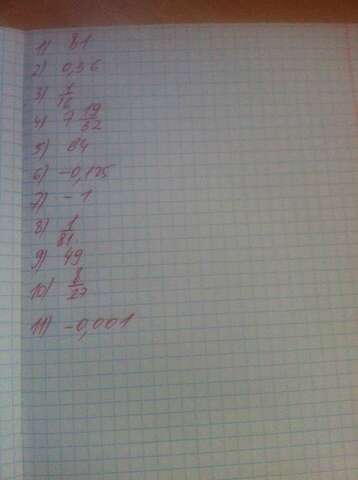 1) 81
2) 0,36
3) 1/16
4) 7 19/32
5) 64
6) -0,125
7) -1
8) 1/81
9) 49
10) 8/27
11) -0,001